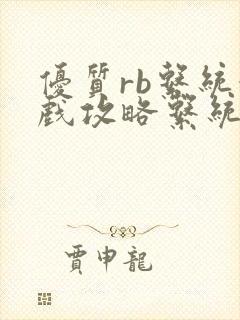 優質rb繫統
戲攻略繫統
賈申龍